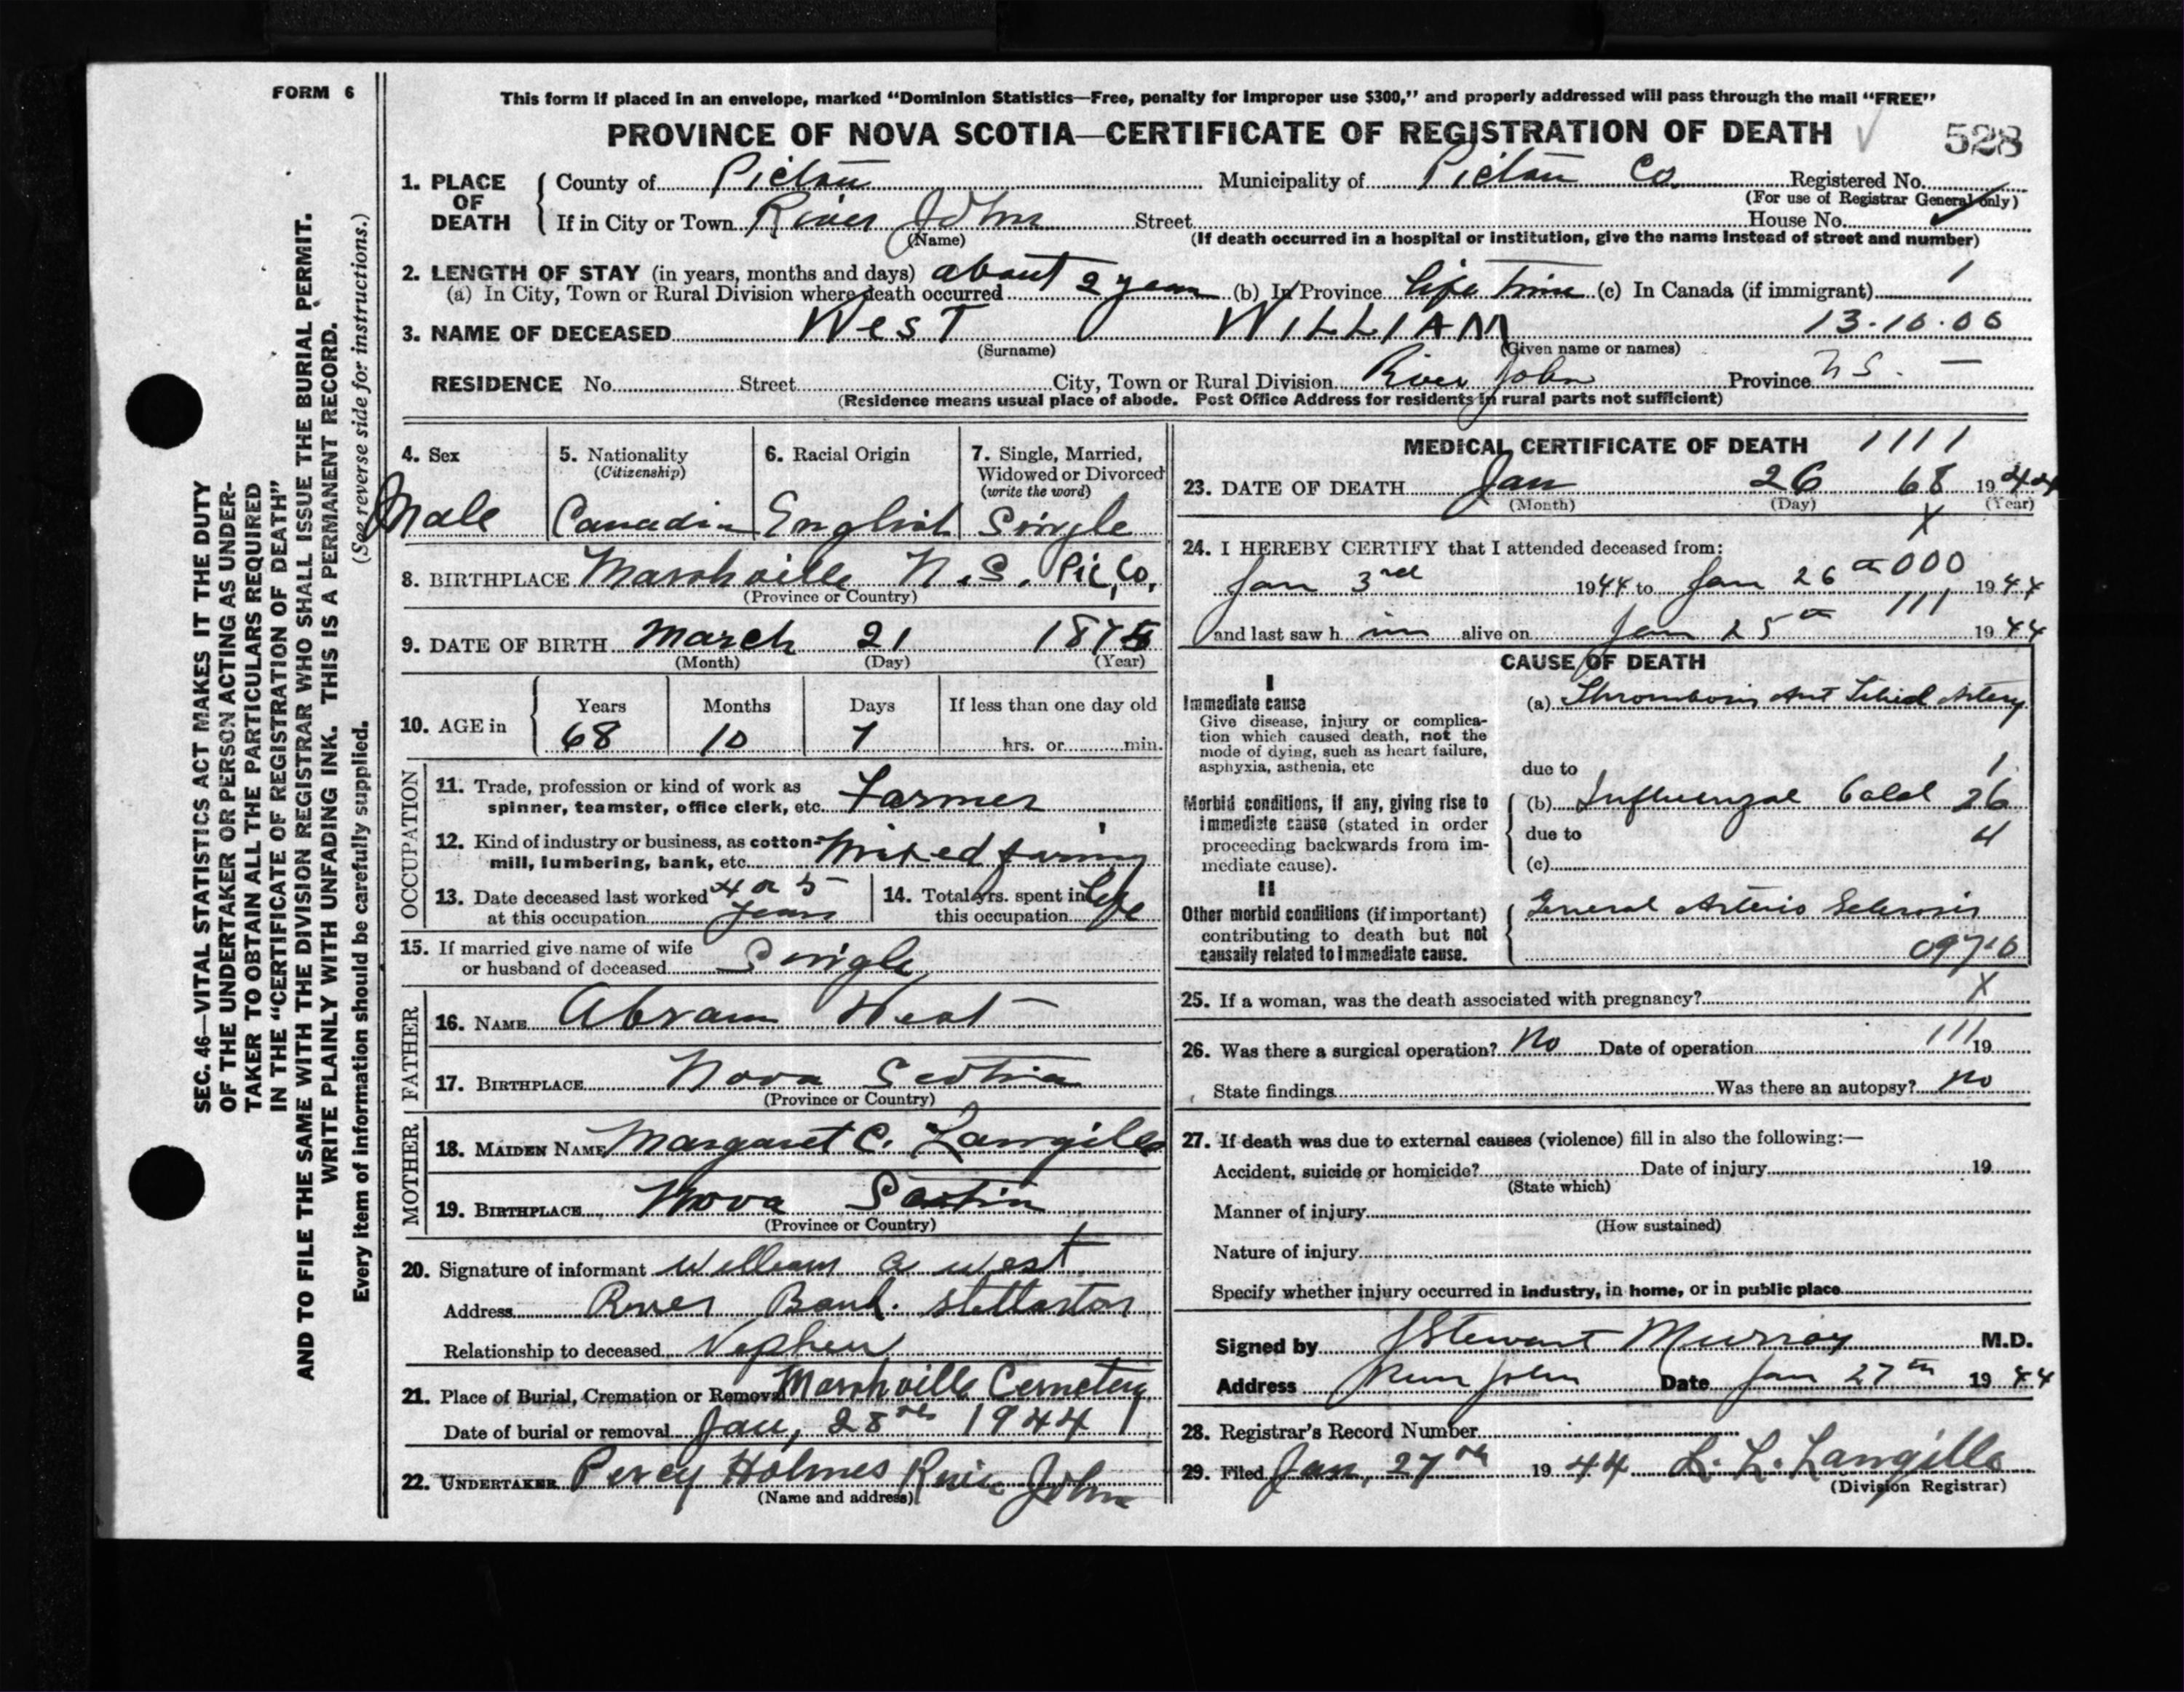 FORM 6
This form if placed in an envelope, marked "Dominion Statistics—Free, penalty for improper use $300," and properly addressed will pass through the mail "FREE"
PROVINCE OF NOVA SCOTIA—CERTIFICATE OF REGISTRATION OF DEATH
528
1. PLACE OF DEATH
County of Pictou Municipality of Pictou Co. Registered No.
(For use of Registrar General only)
If in City or Town River John Street House No.
(Name) (If death occurred in a hospital or institution, give the name instead of street and number)
2. LENGTH OF STAY (in years, months and days)
(a) In City, Town or Rural Division where death occurred about 2 years (b) In Province life time (c) In Canada (if immigrant) 1
3. NAME OF DECEASED West WILLIAM 13.10.06
(Surname) (Given name or names)
RESIDENCE No. Street City, Town or Rural Division River John Province N S. —
(Residence means usual place of abode. Post Office Address for residents in rural parts not sufficient)
4. Sex
Male
5. Nationality
(Citizenship)
Canadian
6. Racial Origin
English
7. Single, Married, Widowed or Divorced
(write the word)
Single
8. BIRTHPLACE Marshville N.S. Pic, Co,
(Province or Country)
9. DATE OF BIRTH March 21 1875
(Month) (Day) (Year)
10. AGE in Years Months Days If less than one day old
68 10 7 hrs. or min.
OCCUPATION
11. Trade, profession or kind of work as
spinner, teamster, office clerk, etc. Farmer
12. Kind of industry or business, as cotton-
mill, lumbering, bank, etc. Mixed farming
13. Date deceased last worked 4 or 5
at this occupation years
14. Total yrs. spent in
this occupation Life
15. If married give name of wife
or husband of deceased Single
FATHER
16. NAME Abram West
17. BIRTHPLACE Nova Scotia
(Province or Country)
MOTHER
18. MAIDEN NAME Margaret C. Langille
19. BIRTHPLACE Nova Scotia
(Province or Country)
20. Signature of informant William A West
Address River Bank. Stellarton
Relationship to deceased Nephew
21. Place of Burial, Cremation or Removal Marshville Cemetery
Date of burial or removal Jan, 28th 1944
22. UNDERTAKER Percy Holmes River John
(Name and address)
MEDICAL CERTIFICATE OF DEATH 1111
23. DATE OF DEATH Jan 26 68 1944
(Month) (Day) (Year)
X
24. I HEREBY CERTIFY that I attended deceased from:
Jan 3rd 1944 to Jan 26th 000 1944
and last saw h im alive on Jan 25th 111 1944
CAUSE OF DEATH
I
Immediate cause
Give disease, injury or complica-
tion which caused death, not the
mode of dying, such as heart failure,
asphyxia, asthenia, etc
(a) Thrombosis Ant Tibial Artery
due to 1
Morbid conditions, if any, giving rise to
immediate cause (stated in order
proceeding backwards from im-
mediate cause).
(b) Influenzal Cold 26
due to 4
(c)
II
Other morbid conditions (if important)
contributing to death but not
causally related to immediate cause.
General Arterio Sclerosis
097.0
25. If a woman, was the death associated with pregnancy? X
26. Was there a surgical operation? No Date of operation 111 19
State findings Was there an autopsy? No
27. If death was due to external causes (violence) fill in also the following:—
Accident, suicide or homicide? Date of injury 19
(State which)
Manner of injury
(How sustained)
Nature of injury
Specify whether injury occurred in industry, in home, or in public place
Signed by J Stewart Murray M.D.
Address River John Date Jan 27th 1944
28. Registrar's Record Number
29. Filed Jan, 27th 1944 L. L. Langille
(Division Registrar)
SEC. 46—VITAL STATISTICS ACT MAKES IT THE DUTY
OF THE UNDERTAKER OR PERSON ACTING AS UNDER-
TAKER TO OBTAIN ALL THE PARTICULARS REQUIRED
IN THE "CERTIFICATE OF REGISTRATION OF DEATH"
AND TO FILE THE SAME WITH THE DIVISION REGISTRAR WHO SHALL ISSUE THE BURIAL PERMIT.
WRITE PLAINLY WITH UNFADING INK. THIS IS A PERMANENT RECORD.
Every item of information should be carefully supplied. (See reverse side for instructions.)